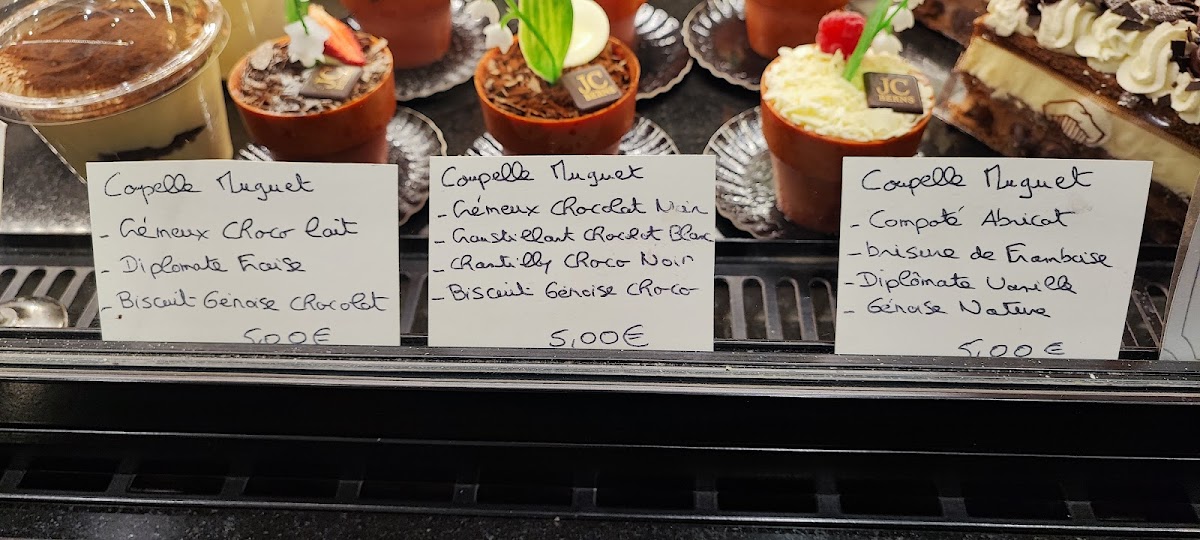 JC
BERNS
JC
BERNS
Coupelle Muguet
- Crémeux Choco lait
- Diplomate Fraise
- Biscuit Génoise Chocolat
5,00€
Coupelle Muguet
- Crémeux Chocolat Noir
- Croustillant Chocolat Blanc
- Chantilly Choco Noir
- Biscuit Génoise Choco
5,00€
Coupelle Muguet
- Compoté Abricot
- brisure de Framboise
- Diplômate Vanille
- Génoise Nature
5,00€